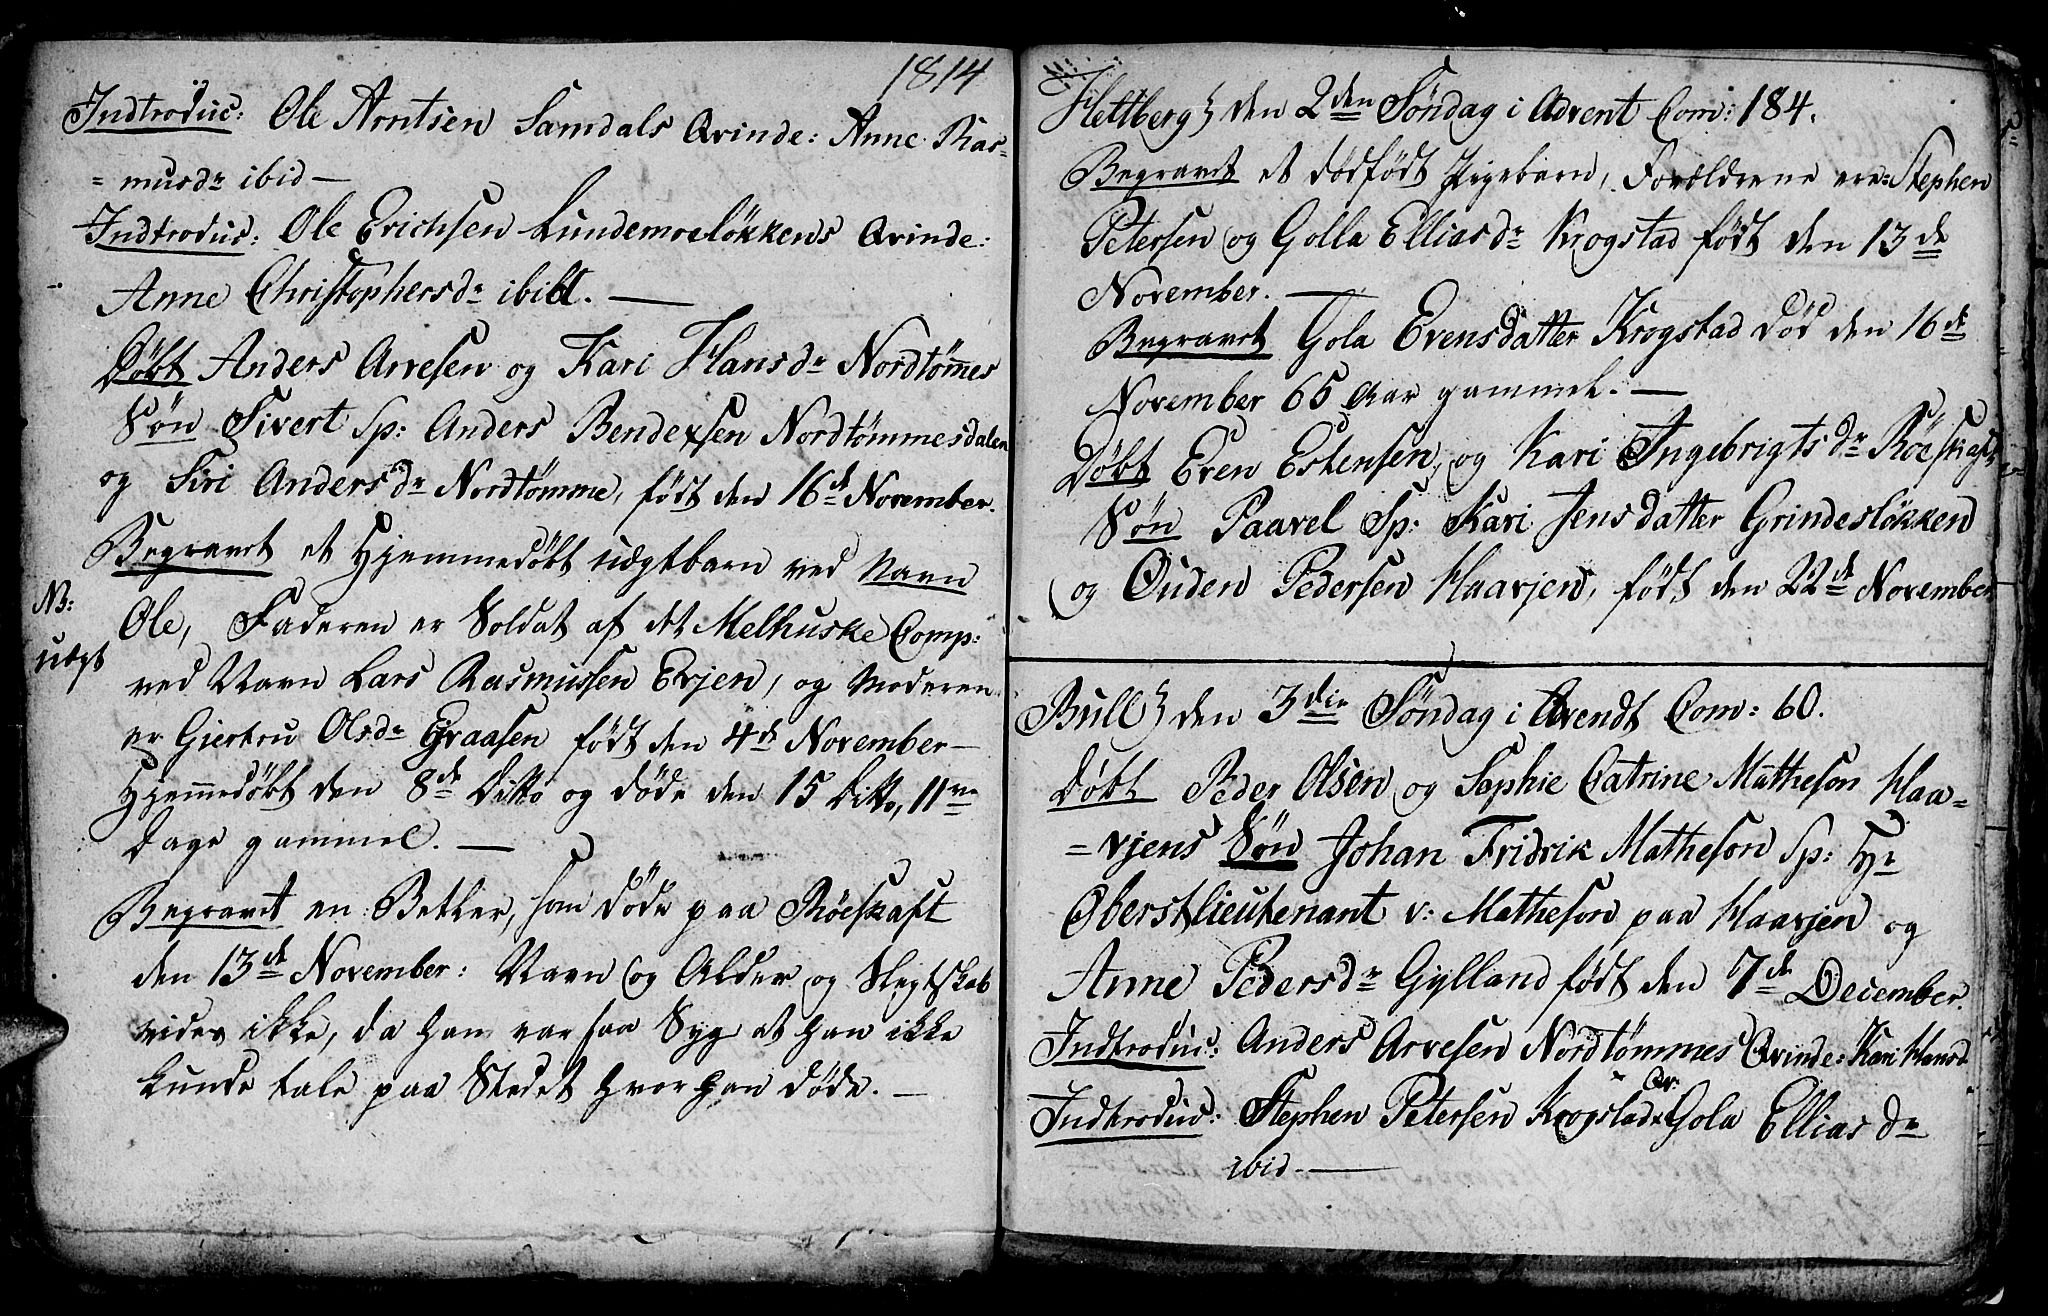 1814
Indtroduc: Ole Arntsen Samdals Qvinde: Anne Ras=
=musdr ibid —
Indtroduc: Ole Erichsen Lundemoeløkkens Qvinde:
Anne Christophersdr ibid. —
Døbt Anders Arvesen og Kari Hansdr Nordtømmes
Søn Sivert Sp: Anders Bendexsen Nordtømmesdalen
og Siri Andersdr Nordtømme, født den 16de November.
Begravet et Hjemmedøbt uægtbarn ved Navn
NB:
uægt
Ole, Faderen er Soldat af det Melhuske Comp:
ved Navn Lars Rasmussen Evjen, og Moderen
er Giertru Olsdr Graasen født den 4de November —
Hjemmedøbt den 8de Ditto og døde den 15 Ditto, 11ve
Dage gammel. —
Begravet en Betler, som døde paa Røeskaft
den 13de November: Navn og Alder og Slegtskab
vides ikke, da han var saa Syg at han ikke
kunde tale paa Stedet hvor han døde. —
Hettberg} den 2den Søndag i Advent Com: 184.
Begravet et dødfødt Pigebarn, Forældrene ere: Stephen
Petersen og Golla Elliasdr Krogstad født den 13de
November. —
Begravet Gola Evensdatter Krogstad død den 16de
November 65 Aar gammel. —
Døbt Even Estensen, og Kari Ingebrigtsdr Røeskaft
Søn Paavel Sp: Kari Jensdatter Grindesløkken
og Ouden Pedersen Haavjen, født den 22de November
Bull} den 3die Søndag i Avendt Com: 60.
Døbt Peder Olsen og Sophie Catrine Matheson Haa=
=vjens Søn Johan Fridrik Matheson Sp: Hr
Oberstlieutenant v: Matheson paa Haavjen og
Anne Pedersdr Gylland født den 7de December.
Indtroduc: Anders Arvesen Nordtømmes Qvinde: Kari Hansd
Indtroduc: Stephen Petersen Krogstads Qv: Gola Elliasdr
ibid. —